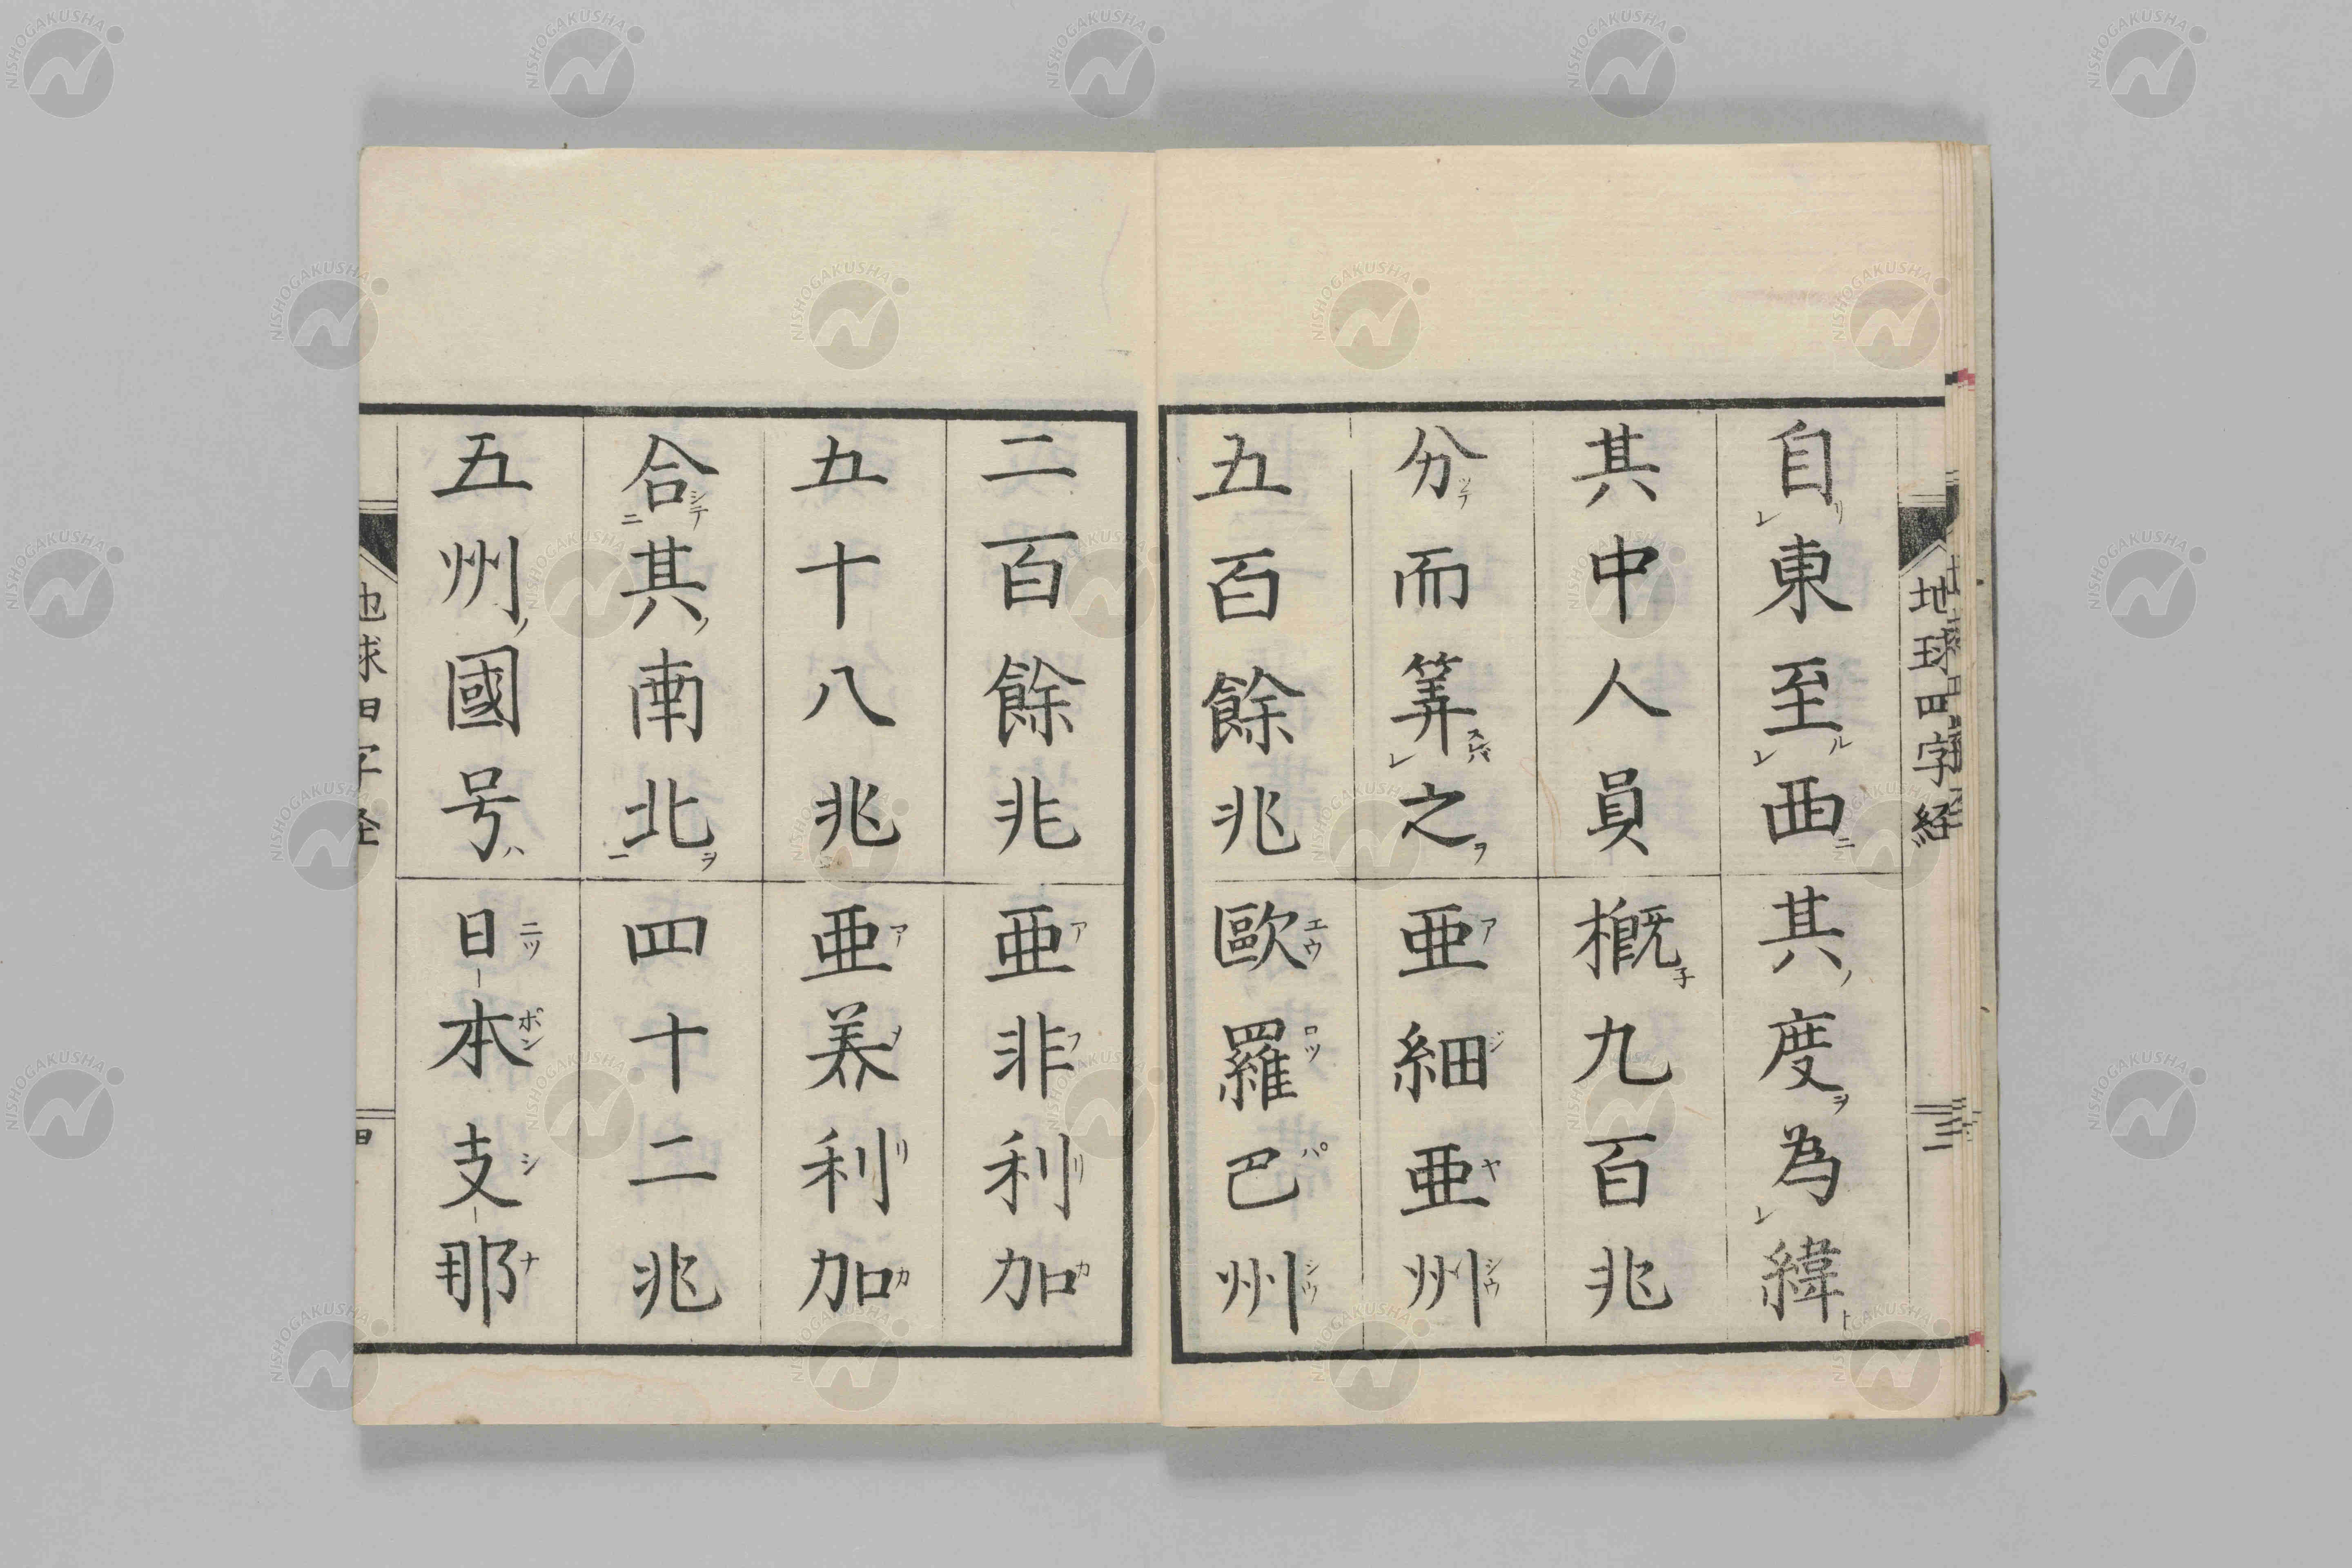 自東至西其度為緯
其中人員概九百兆
分而筭之亜細亜州
五百餘兆歐羅巴州
二百餘兆亜非利加
五十八兆亜美利加
合其南北四十二兆
五州國号日本支那
地球四字経
三
NISHOGAKUSHA